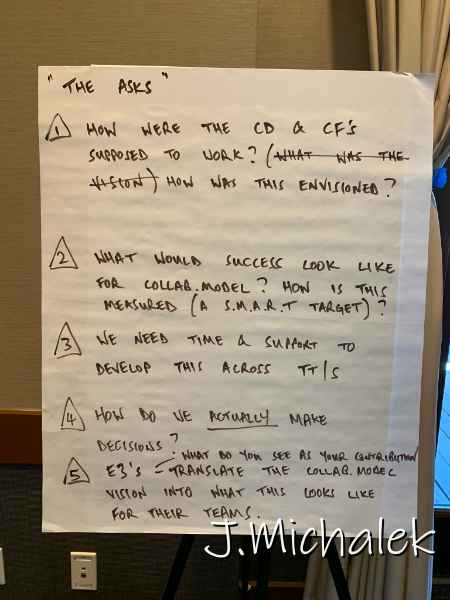 "THE ASKS"
1 HOW WERE THE CD & CF'S
SUPPOSED TO WORK? (WHAT WAS THE
VISION) HOW WAS THIS ENVISIONED?
2 WHAT WOULD SUCCESS LOOK LIKE
FOR COLLAB.MODEL? HOW IS THIS
MEASURED (A S.M.A.R.T TARGET)?
3 WE NEED TIME & SUPPORT TO
DEVELOP THIS ACROSS TT/S
4 HOW DO WE ACTUALLY MAKE
DECISIONS?
WHAT DO YOU SEE AS YOUR CONTRIBUTION
5 E3'S - TRANSLATE THE COLLAB.MODEL
VISION INTO WHAT THIS LOOKS LIKE
FOR THEIR TEAMS.
J.Michalek